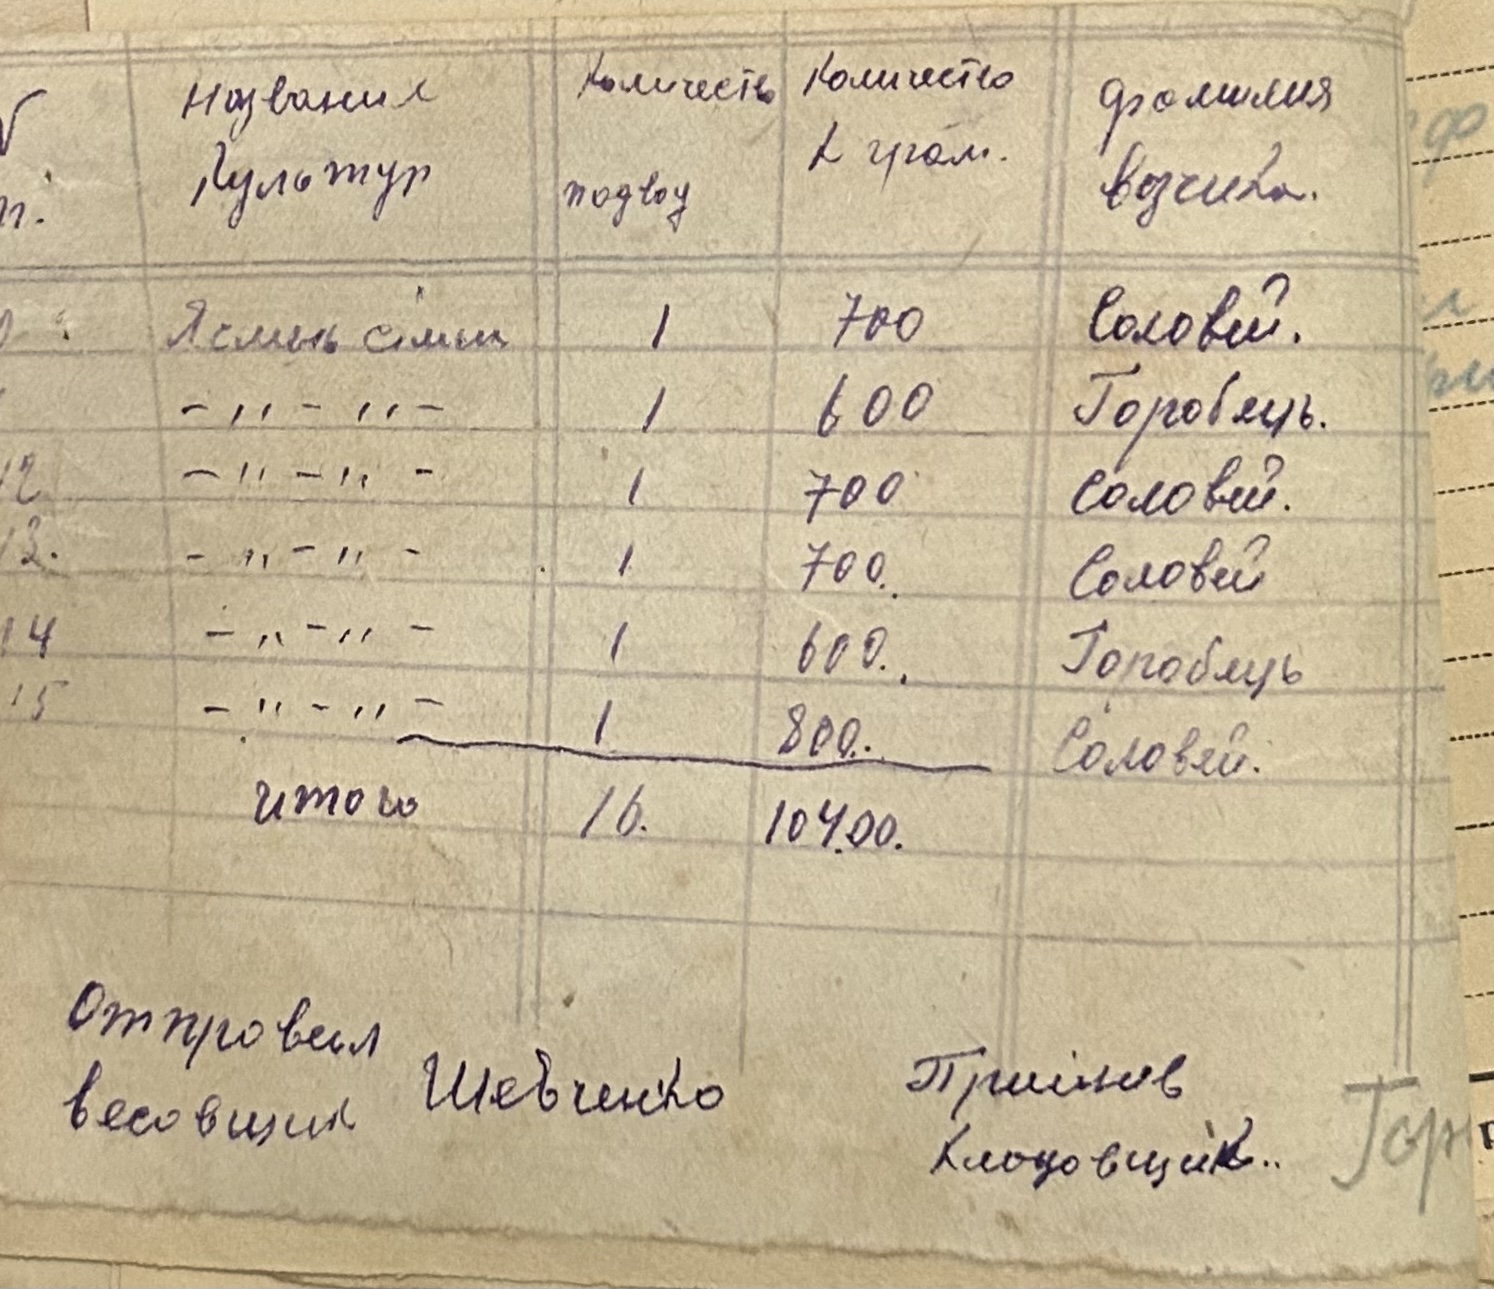 п.
Название Количество Количество Фамилия
Культур подвод К грам. Возчика.
Ясмень 1 700 Соловей.
- „ - „ - 1 600 Горобець.
12 - „ - „ - 1 700 Соловей.
13. - „ - „ - 1 700. Соловей
14 - „ - „ - 1 600. Горобець
15 - „ - „ - 1 800. Соловей.
Итого 16. 10400.
Отправил
Весовщик Шевченко
Приіняв
Кладовщик..
Гор